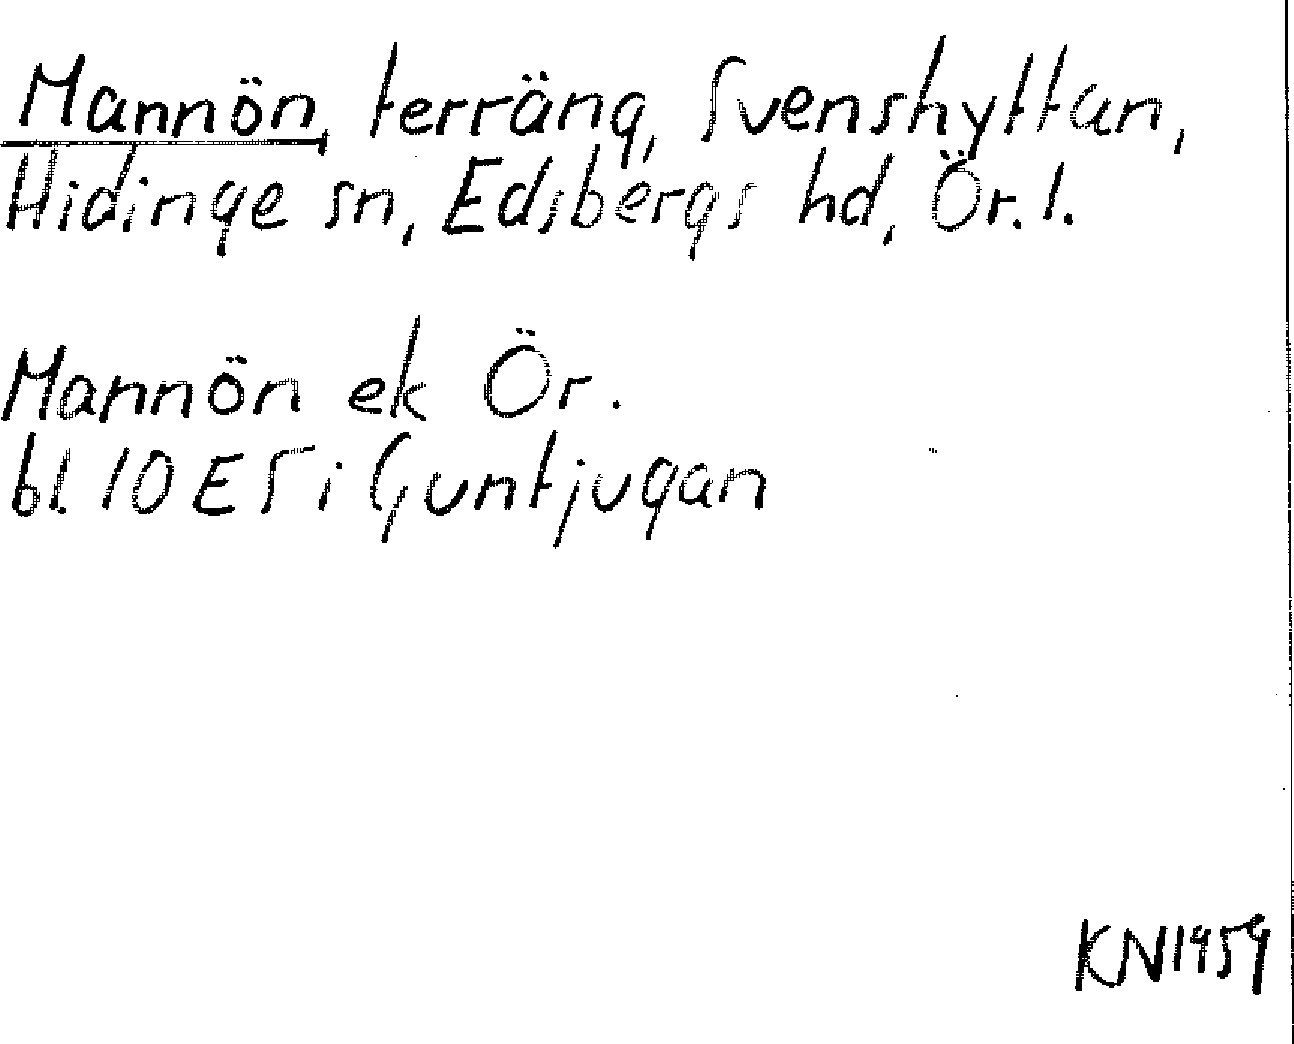 Mannön, terräng, Svenshyttan,
Hidinge sn, Edsbergs hd, Ör. l.
Mannön ek Ör.
bl. 10 E 5 i Guntjugan
KN 1959